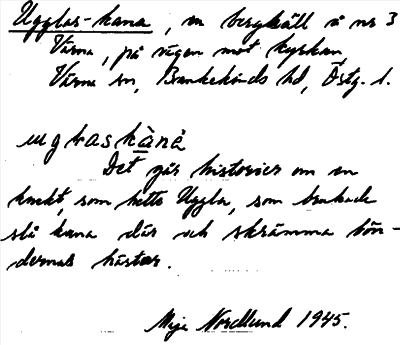 Ugglas-kana, en bergkäll å nr 3
Värna, på vägen mot kyrkan
Värna sn, Bankekinds hd, Östg. l.
uglaskànà
Det går historier om en
knekt, som hette Uggla, som brukade
slå kana där och skrämma bön-
dernas hästar.
Nordlund 1945.